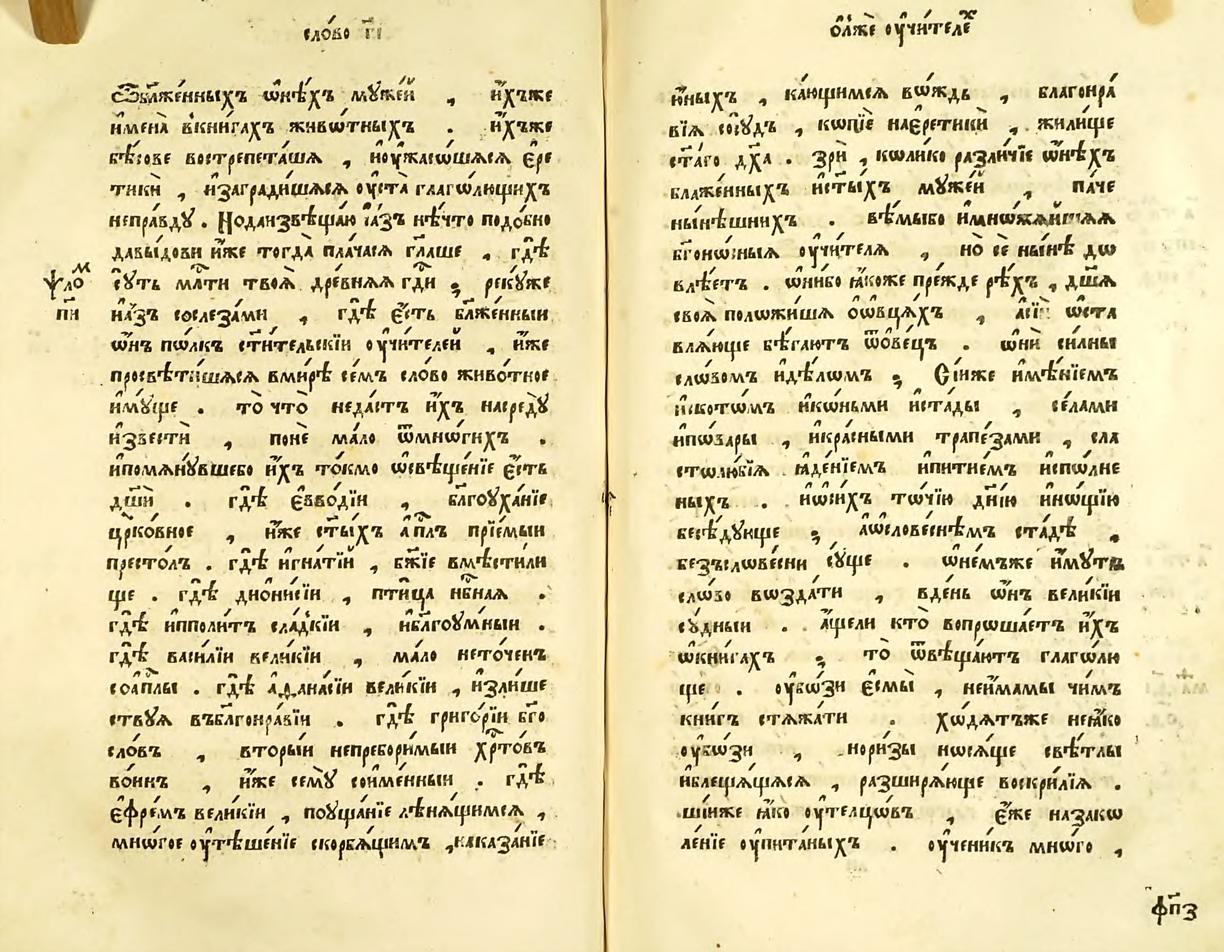 сло́во г҃і
Ѿбл҃же́нныхъ ѡ҆нѣ́хъ мꙋже́й , и҆́хъже
и҆мена̀ в̾кни́гахъ живѡ́тныхъ . и҆́хъже
бѣ́сове вострепета́шѧ , и҆оу҆жасѡ́шѧсѧ є҆ре
тикѝ , и҆загради́шѧсѧ оу҆ста̀ глаго́лющихъ
непра́вдꙋ . Но̀даи҆звѣща́ю і҆а҆́зъ нѣ́что подо́бно
давы́дови и҆́же тогда̀ пла́часѧ гл҃аше , гдѣ̀
сꙋ́ть млⷭ҇ти твоѧ̀ дре́внѧѧ гдⷭ҇и ; рекꙋ́же
и҆а҆́зъ сослеза́ми , гдѣ̀ є҆́сть бл҃же́нныи
ѡ҆́нъ пѡ́лкъ ст҃и́тельскїи оу҆чи́телей , и҆́же
просвѣти́шѧсѧ вми́рѣ се́мъ сло́во живо́тное
и҆мꙋ́ще . то̀ что̀ неда́стъ и҆́хъ насредꙋ̀
и҆звестѝ , понѐ ма́ло ѿмнѡ́гихъ .
и҆помѧнꙋ́вшебо и҆́хъ то́кмо ѡ҆свѣще́нїе є҆́сть
дш҃и . гдѣ̀ є҆́зво́дїи , бл҃гоꙋха́нїе
цр҃ко́вное , и҆́же ст҃ы́хъ а҆пⷭ҇лъ прїе́мыи
престо́лъ . гдѣ̀ и҆гна́тїй , бж҃їе вмѣсти́ли
ще . гдѣ̀ дионисїи , пти́ца нбⷭ҇наѧ .
гдѣ̀ и҆пполи́тъ сла́дкїи , и҆бл҃гоꙋ́мныи .
гдѣ̀ васи́лїи вели́кїи , ма́ло нето́ченъ
соа҆пⷭ҇лы . гдѣ̀ а҆ѳана́сїи вели́кїи , и҆зли́ше
ствꙋѧ въбл҃гонра́вїи . гдѣ̀ григо́рїи бг҃о
сло́въ , вторы́и непребори́мыи хрⷭ҇то́въ
во́инъ , и҆́же семꙋ̀ соиме́нныи . гдѣ̀
є҆фре́мъ вели́кїи , поꙋща́нїе лѣнѧ́щимсѧ ,
мнѡ́гое оу҆тѣше́нїе скорбѧ́щимъ , наказа́нїе
ѱало́мъ
пи
ѻ҆́лже оу҆чи́телеⷯ
ю҆́ныхъ , ка́ющимсѧ вѡ́ждь , благонра́
вїѧ сосꙋ́дъ , кѡпїѐ нае҆ретикѝ , жили́ще
ст҃а́го дх҃а . зрѝ , кѡли́ко разли́чїе ѡ҆нѣ́хъ
блаже́нныхъ и҆ст҃ы́хъ мꙋже́й , па́че
ны́нѣшнихъ . вѣ́мыбо и҆мнѡжа́йшаѧ
бг҃оно́сныѧ оу҆чи́телѧ , но̀ се ны́нѣ дѡ
влѣ́етъ . ѡ҆ни́бо ꙗ҆́коже пре́жде рѣ́хъ , дш҃а
своѧ̀ положи́шѧ оѡ҆вца́хъ , а҆сїѝ ѡ҆ста
влѧ́юще бѣ́гаютъ ѿо҆ве́цъ . ѡ҆нѝ си́лны
сло́вомъ и҆дѣ́лѡмъ ; Сїи́же и҆мѣ́нїемъ
и҆скотѡ́мъ и҆ко́ньми и҆ста́ды , се́лами
и҆пѡ́вары , и҆кра́сными трапе́зами , сла
столю́бїѧ . ꙗ҆де́нїемъ и҆питїе́мъ и҆спо́лне
ныхъ . и҆ѡ҆си́хъ то́чїю дні́ю и҆но́щїю
бесѣ́дꙋюще ; а҆ѡ҆слове́снѣмъ ста́дѣ ,
безъслове́сни сꙋ́ще . ѡ҆не́мъже и҆́мꙋть
сло́во возда́ти , вде́нь ѡ҆́нъ вели́кїи
сꙋ́дныи . а҆́щели кто̀ вопроша́етъ и҆́хъ
ѡ҆кни́гахъ ; то̀ ѿвѣща́ютъ глаго́лю
ще . оу҆бо́зи є҆смы̀ , неи҆́мамы чи́мъ
кни́гъ стѧжа́ти . хо́дѧтъже неꙗ҆́ко
оу҆бо́зи , нори́зы носѧ́ще свѣ́тлы
и҆блеща́щѧсѧ , разширѧ́юще воскри́лїѧ .
ши́иже ꙗ҆́ко оу҆тельцо́въ , є҆́же назако
ле́нїе оу҆пита́ныхъ . оу҆чени́къ мно́го ,
фп҃з